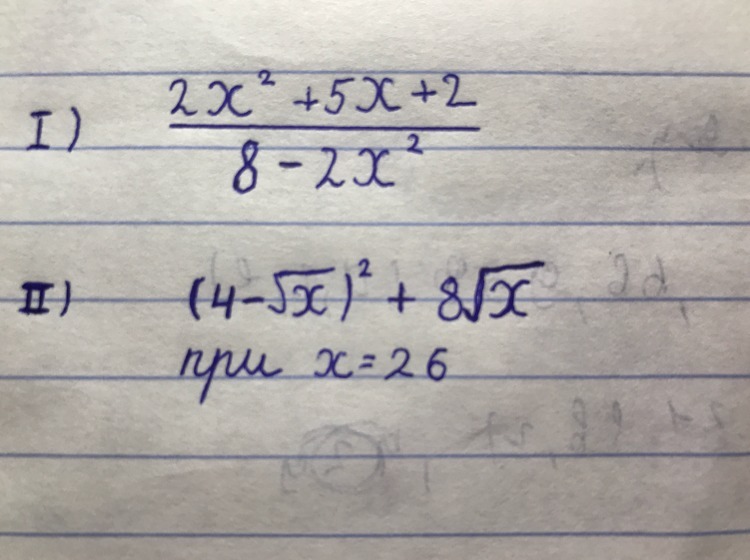 I) (2x² + 5x + 2) / (8 - 2x²)
II) (4 - √x)² + 8√x
при x = 26